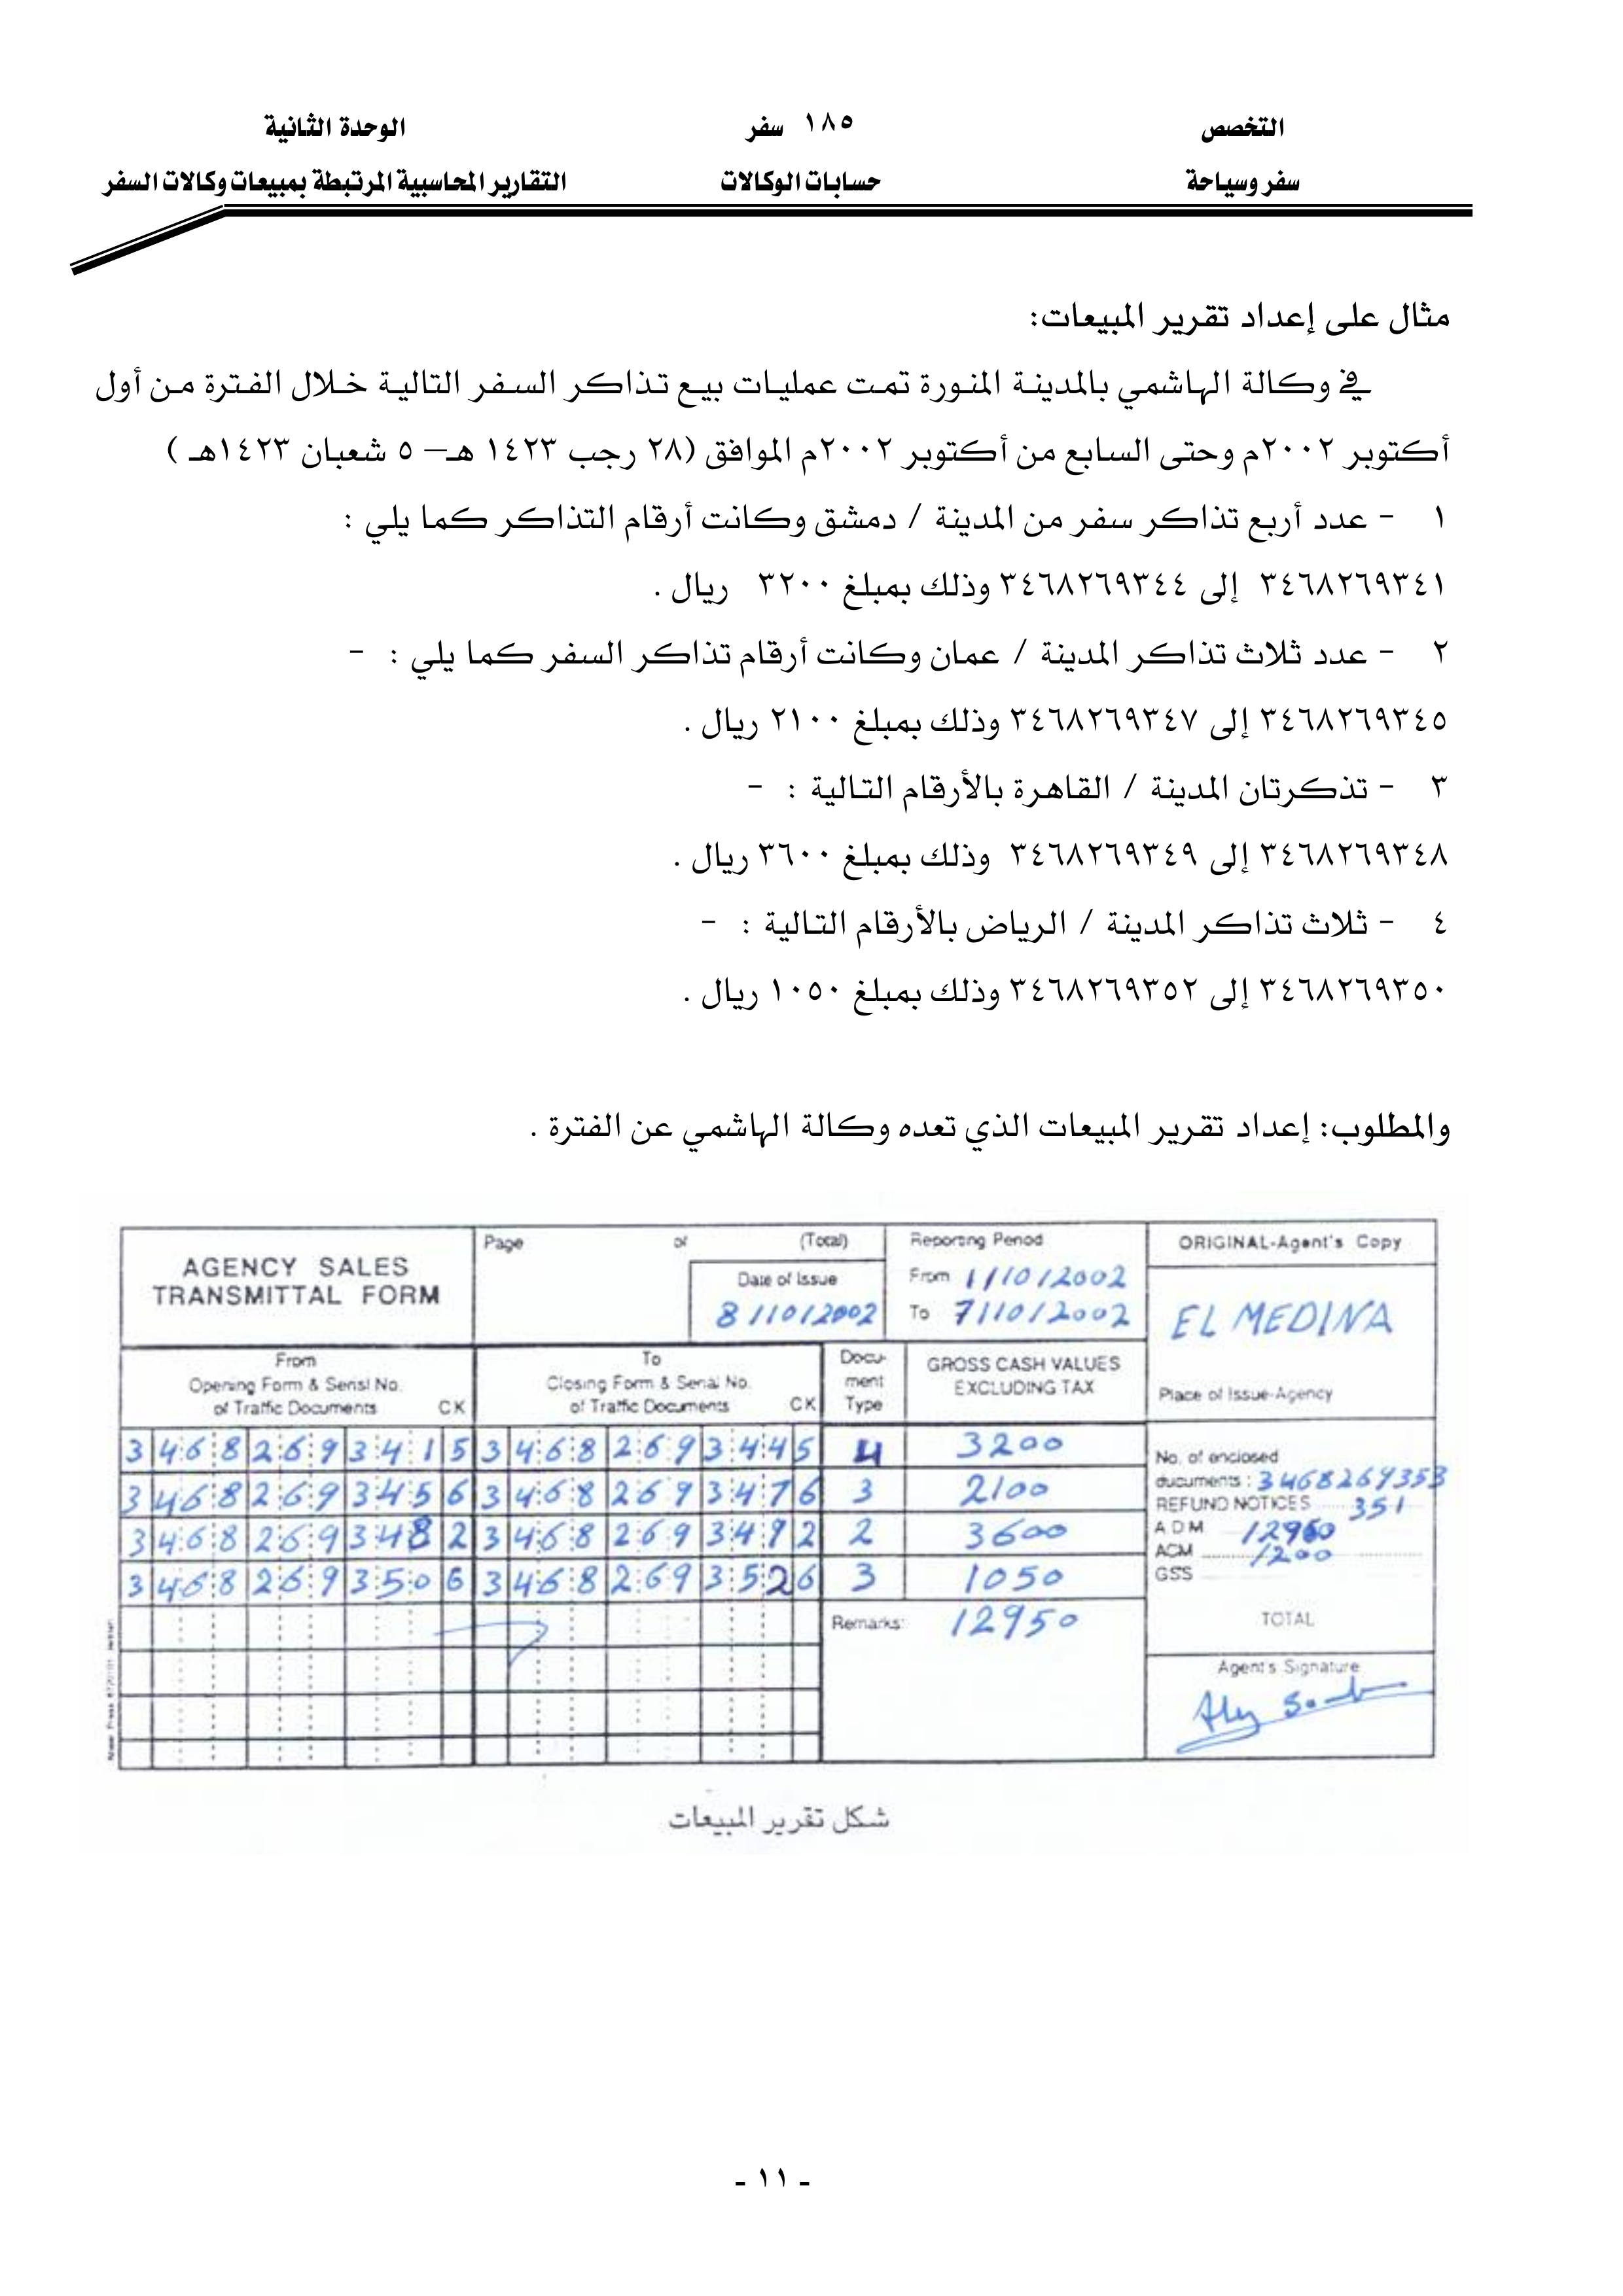 التخصص
١٨٥ سفر
الوحدة الثانية
سفر وسياحة
حسابات الوكالات
التقارير المحاسبية المرتبطة بمبيعات وكالات السفر
مثال على إعداد تقرير المبيعات:
في وكالة الهاشمي بالمدينة المنورة تمت عمليات بيع تذاكر السفر التالية خلال الفترة من أول
أكتوبر ٢٠٠٢م وحتى السابع من أكتوبر ٢٠٠٢م الموافق (٢٨ رجب ١٤٢٣ هـ– ٥ شعبان ١٤٢٣هـ )
١ - عدد أربع تذاكر سفر من المدينة / دمشق وكانت أرقام التذاكر كما يلي :
٣٤٦٨٢٦٩٣٤١ إلى ٣٤٦٨٢٦٩٣٤٤ وذلك بمبلغ ٣٢٠٠ ريال .
٢ - عدد ثلاث تذاكر المدينة / عمان وكانت أرقام تذاكر السفر كما يلي : -
٣٤٦٨٢٦٩٣٤٥ إلى ٣٤٦٨٢٦٩٣٤٧ وذلك بمبلغ ٢١٠٠ ريال .
٣ - تذكرتان المدينة / القاهرة بالأرقام التالية : -
٣٤٦٨٢٦٩٣٤٨ إلى ٣٤٦٨٢٦٩٣٤٩ وذلك بمبلغ ٣٦٠٠ ريال .
٤ - ثلاث تذاكر المدينة / الرياض بالأرقام التالية : -
٣٤٦٨٢٦٩٣٥٠ إلى ٣٤٦٨٢٦٩٣٥٢ وذلك بمبلغ ١٠٥٠ ريال .
والمطلوب: إعداد تقرير المبيعات الذي تعده وكالة الهاشمي عن الفترة .
AGENCY SALES
TRANSMITTAL FORM
Page of (Total)
Date of Issue
8/10/2002
Reporting Period
From 1/10/2002
To 7/10/2002
ORIGINAL-Agent's Copy
EL MEDINA
Place of Issue-Agency
From
Opening Form & Serial No.
of Traffic Documents CK
To
Closing Form & Serial No.
of Traffic Documents CK
Docu-
ment
Type
GROSS CASH VALUES
EXCLUDING TAX
3 468 269 341 5 3 468 269 344 5 4 3200
3 468 269 345 6 3 468 269 347 6 3 2100
3 468 269 348 2 3 468 269 349 2 2 3600
3 468 269 350 6 3 468 269 352 6 3 1050
Remarks: 12950
No. of enclosed
documents : 3468269353
REFUND NOTICES 351
ADM 12950
ACM 1200
GSS
TOTAL
Agent's Signature
شكل تقرير المبيعات
- ١١ -